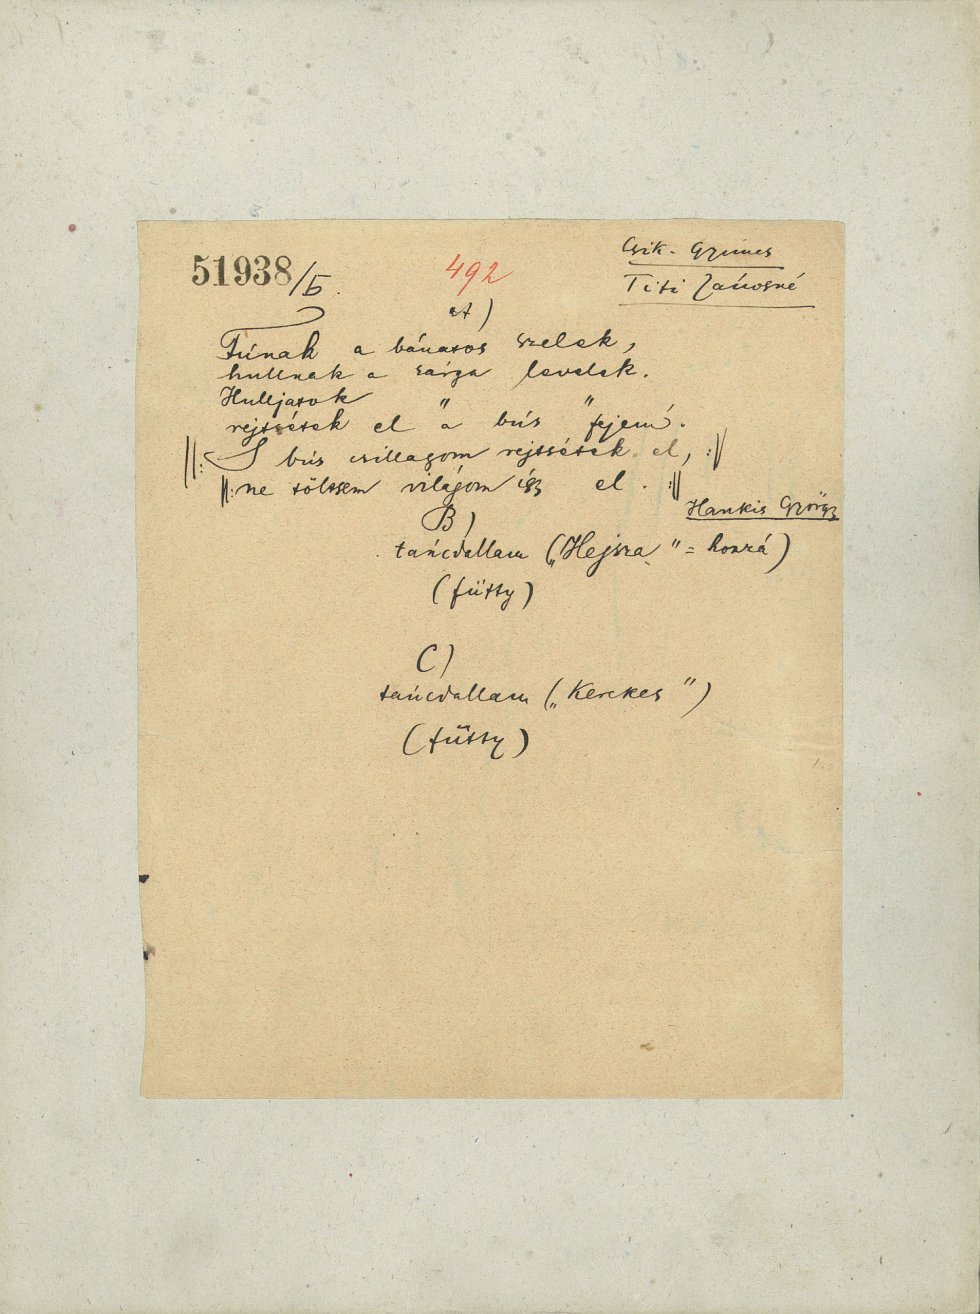 51938/5.
492
Csik. Gyimes
Titi Jánosné
A)
Fúnak a bánatos szelek,
hullnak a sárga levelek.
Hulljatok " "
rejtsétek el a bús fejem.
||: S bús csillagom rejtsétek el, :||
||: ne töltsem világom így el. :||
Hankis György
B)
táncdallam („Hejsza" = hozzá)
(fütty)
C)
táncdallam („Kerekes")
(fütty)